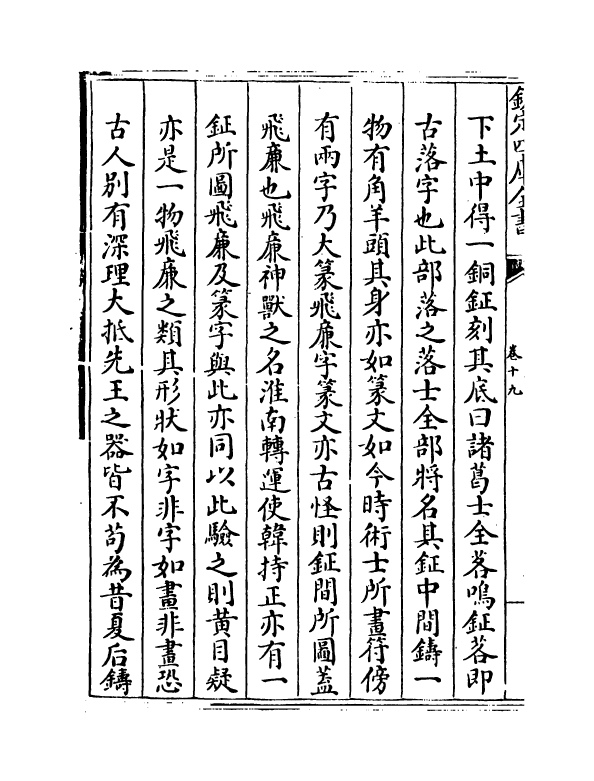 欽定四庫全書
卷十九
下土中得一銅鉦刻其底曰諸葛士全茖鳴鉦茖即
古落字也此部落之落士全部將名其鉦中間鑄一
物有角羊頭其身亦如篆文如今時術士所畫符傍
有兩字乃大篆飛廉字篆文亦古怪則鉦間所圖蓋
飛廉也飛廉神獸之名淮南轉運使韓持正亦有一
鉦所圖飛廉及篆字與此亦同以此驗之則黄目疑
亦是一物飛廉之類其形狀如字非字如畫非畫恐
古人别有深理大抵先王之器皆不苟為昔夏后鑄